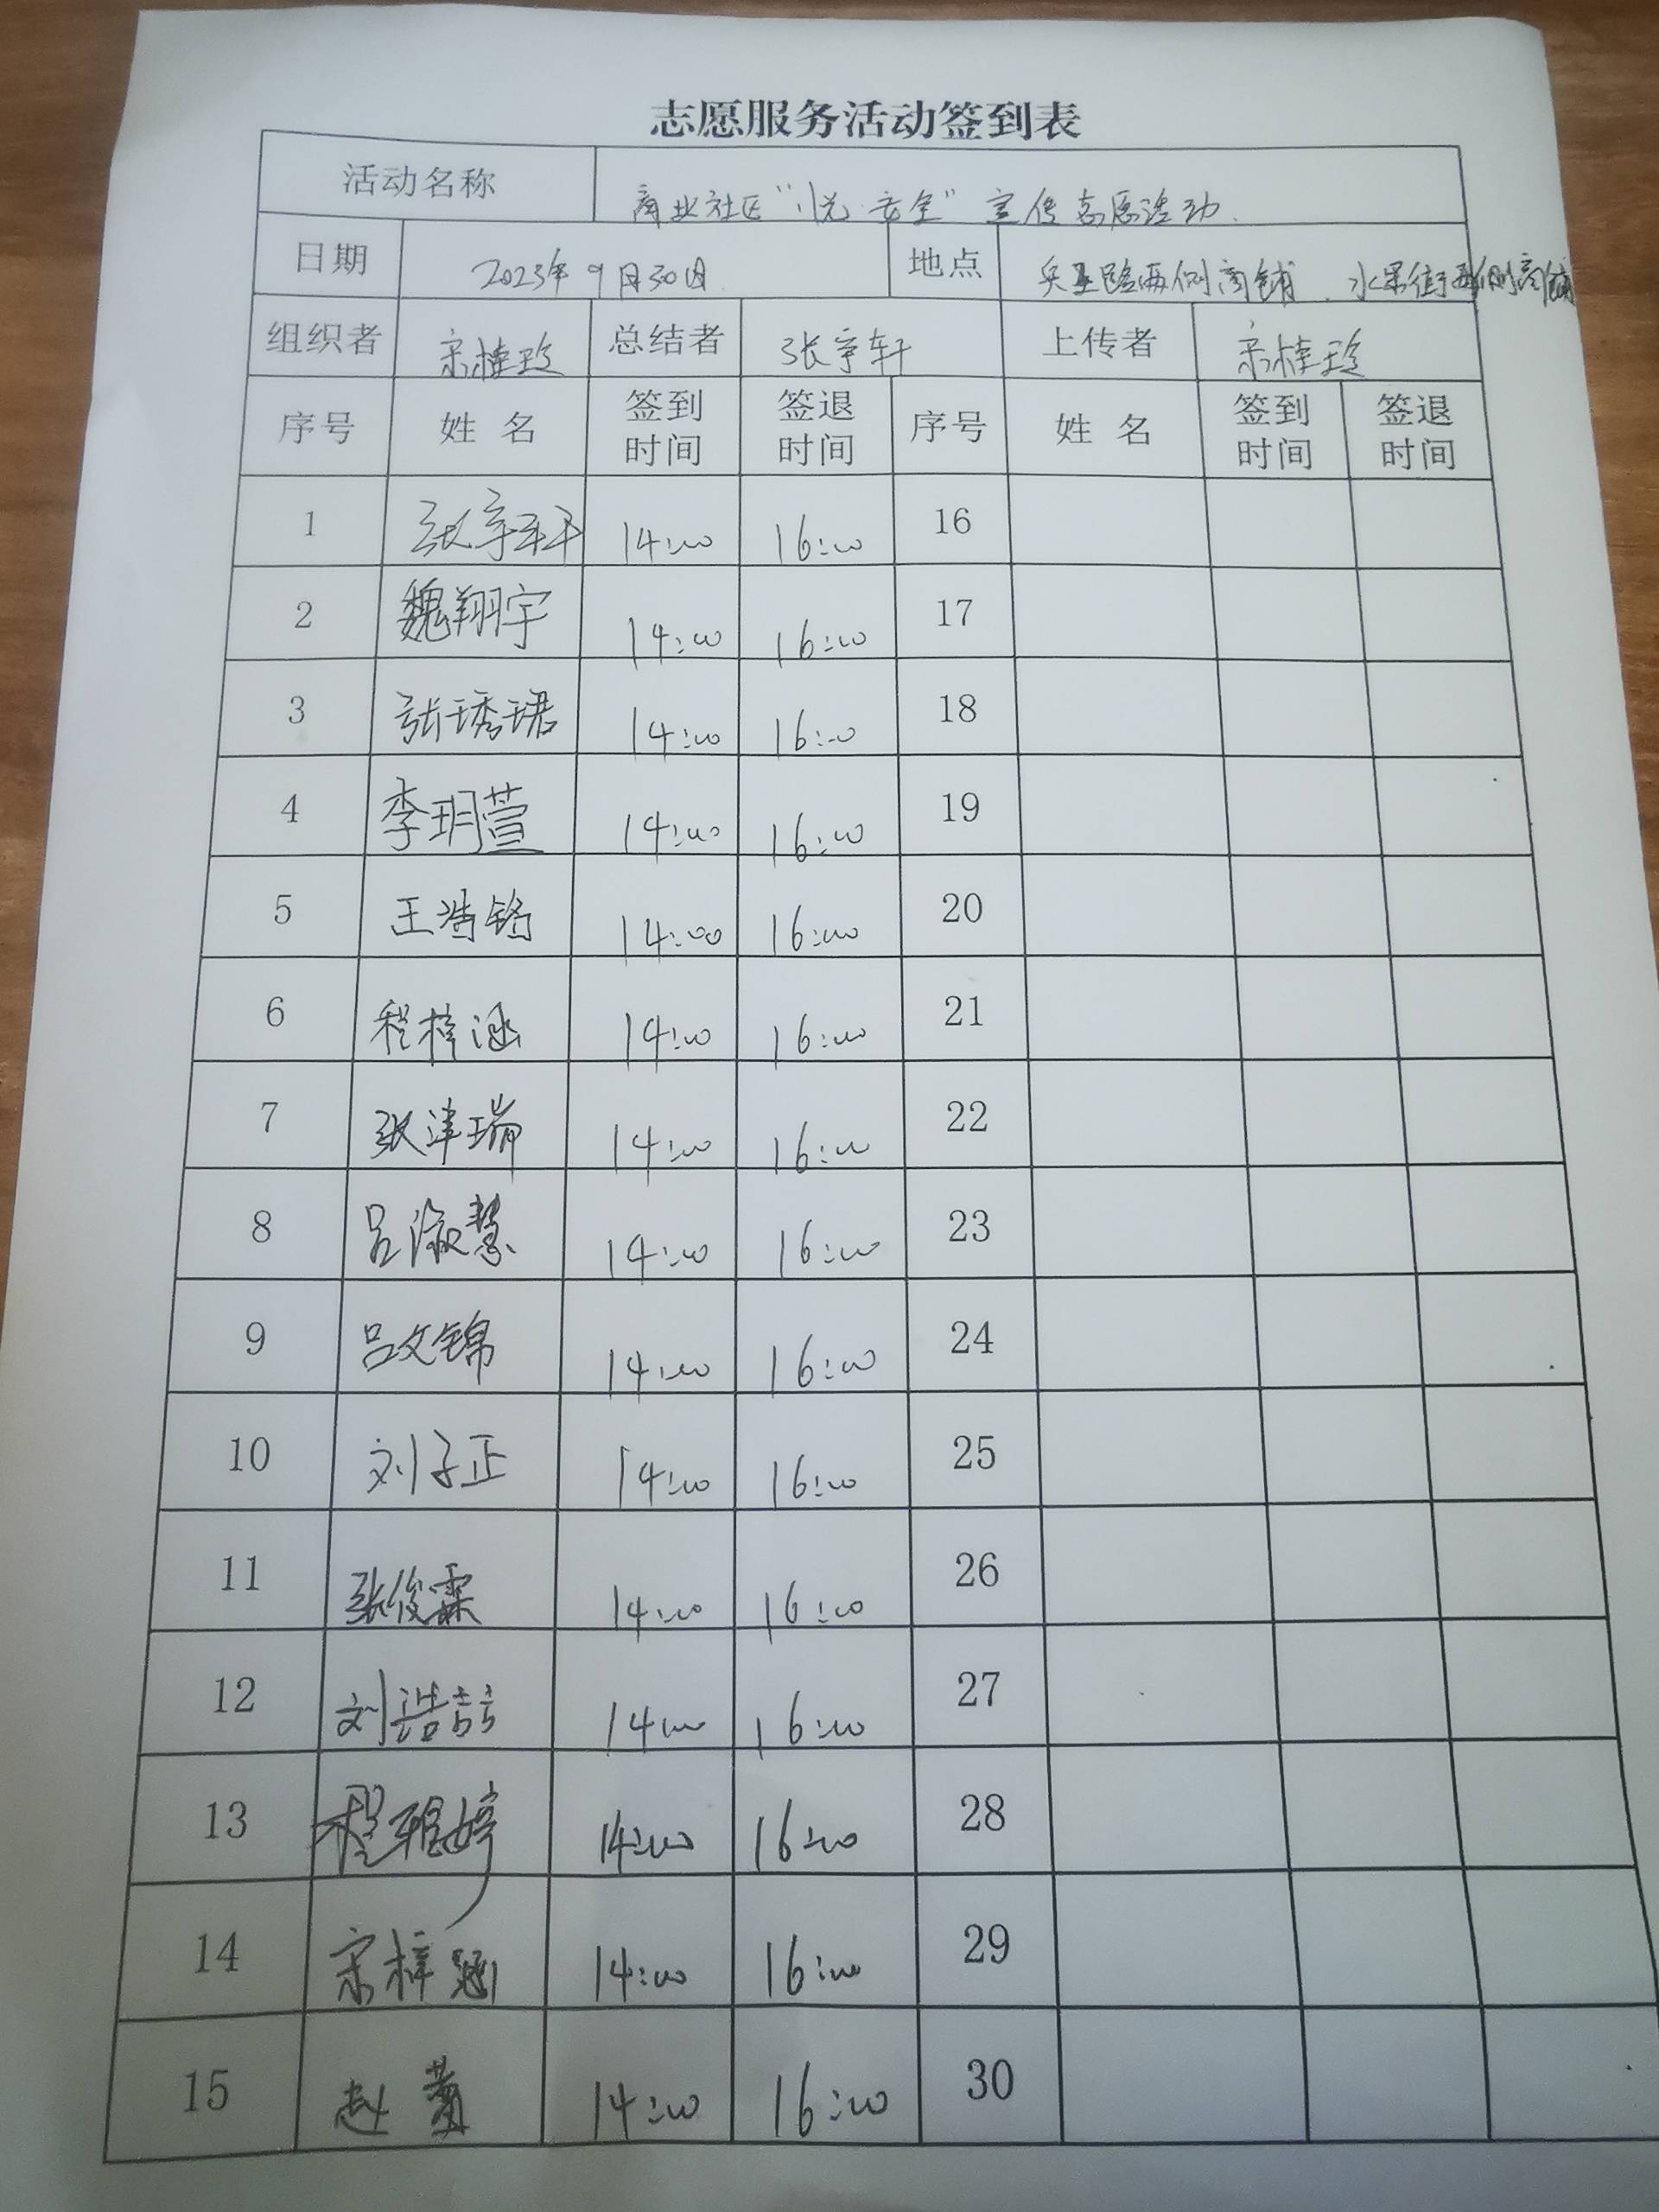 志愿服务活动签到表
活动名称 商业社区“悦·安全”宣传志愿活动.
日期 2023年9月30日 地点 兵工路两侧商铺、水果街两侧商铺
组织者 宋桂玲 总结者 张宇轩 上传者 宋桂玲
序号 姓名 签到时间 签退时间 序号 姓名 签到时间 签退时间
1 张宇轩 14:00 16:00 16
2 魏翔宇 14:00 16:00 17
3 张琇珺 14:00 16:00 18
4 李玥萱 14:00 16:00 19
5 王浩铭 14:00 16:00 20
6 程梓涵 14:00 16:00 21
7 张津瑞 14:00 16:00 22
8 吕淑慧 14:00 16:00 23
9 吕文锦 14:00 16:00 24
10 刘子正 14:00 16:00 25
11 张俊霖 14:00 16:00 26
12 刘浩喆 14:00 16:00 27
13 程雅婷 14:00 16:00 28
14 宋梓涵 14:00 16:00 29
15 赵 14:00 16:00 30